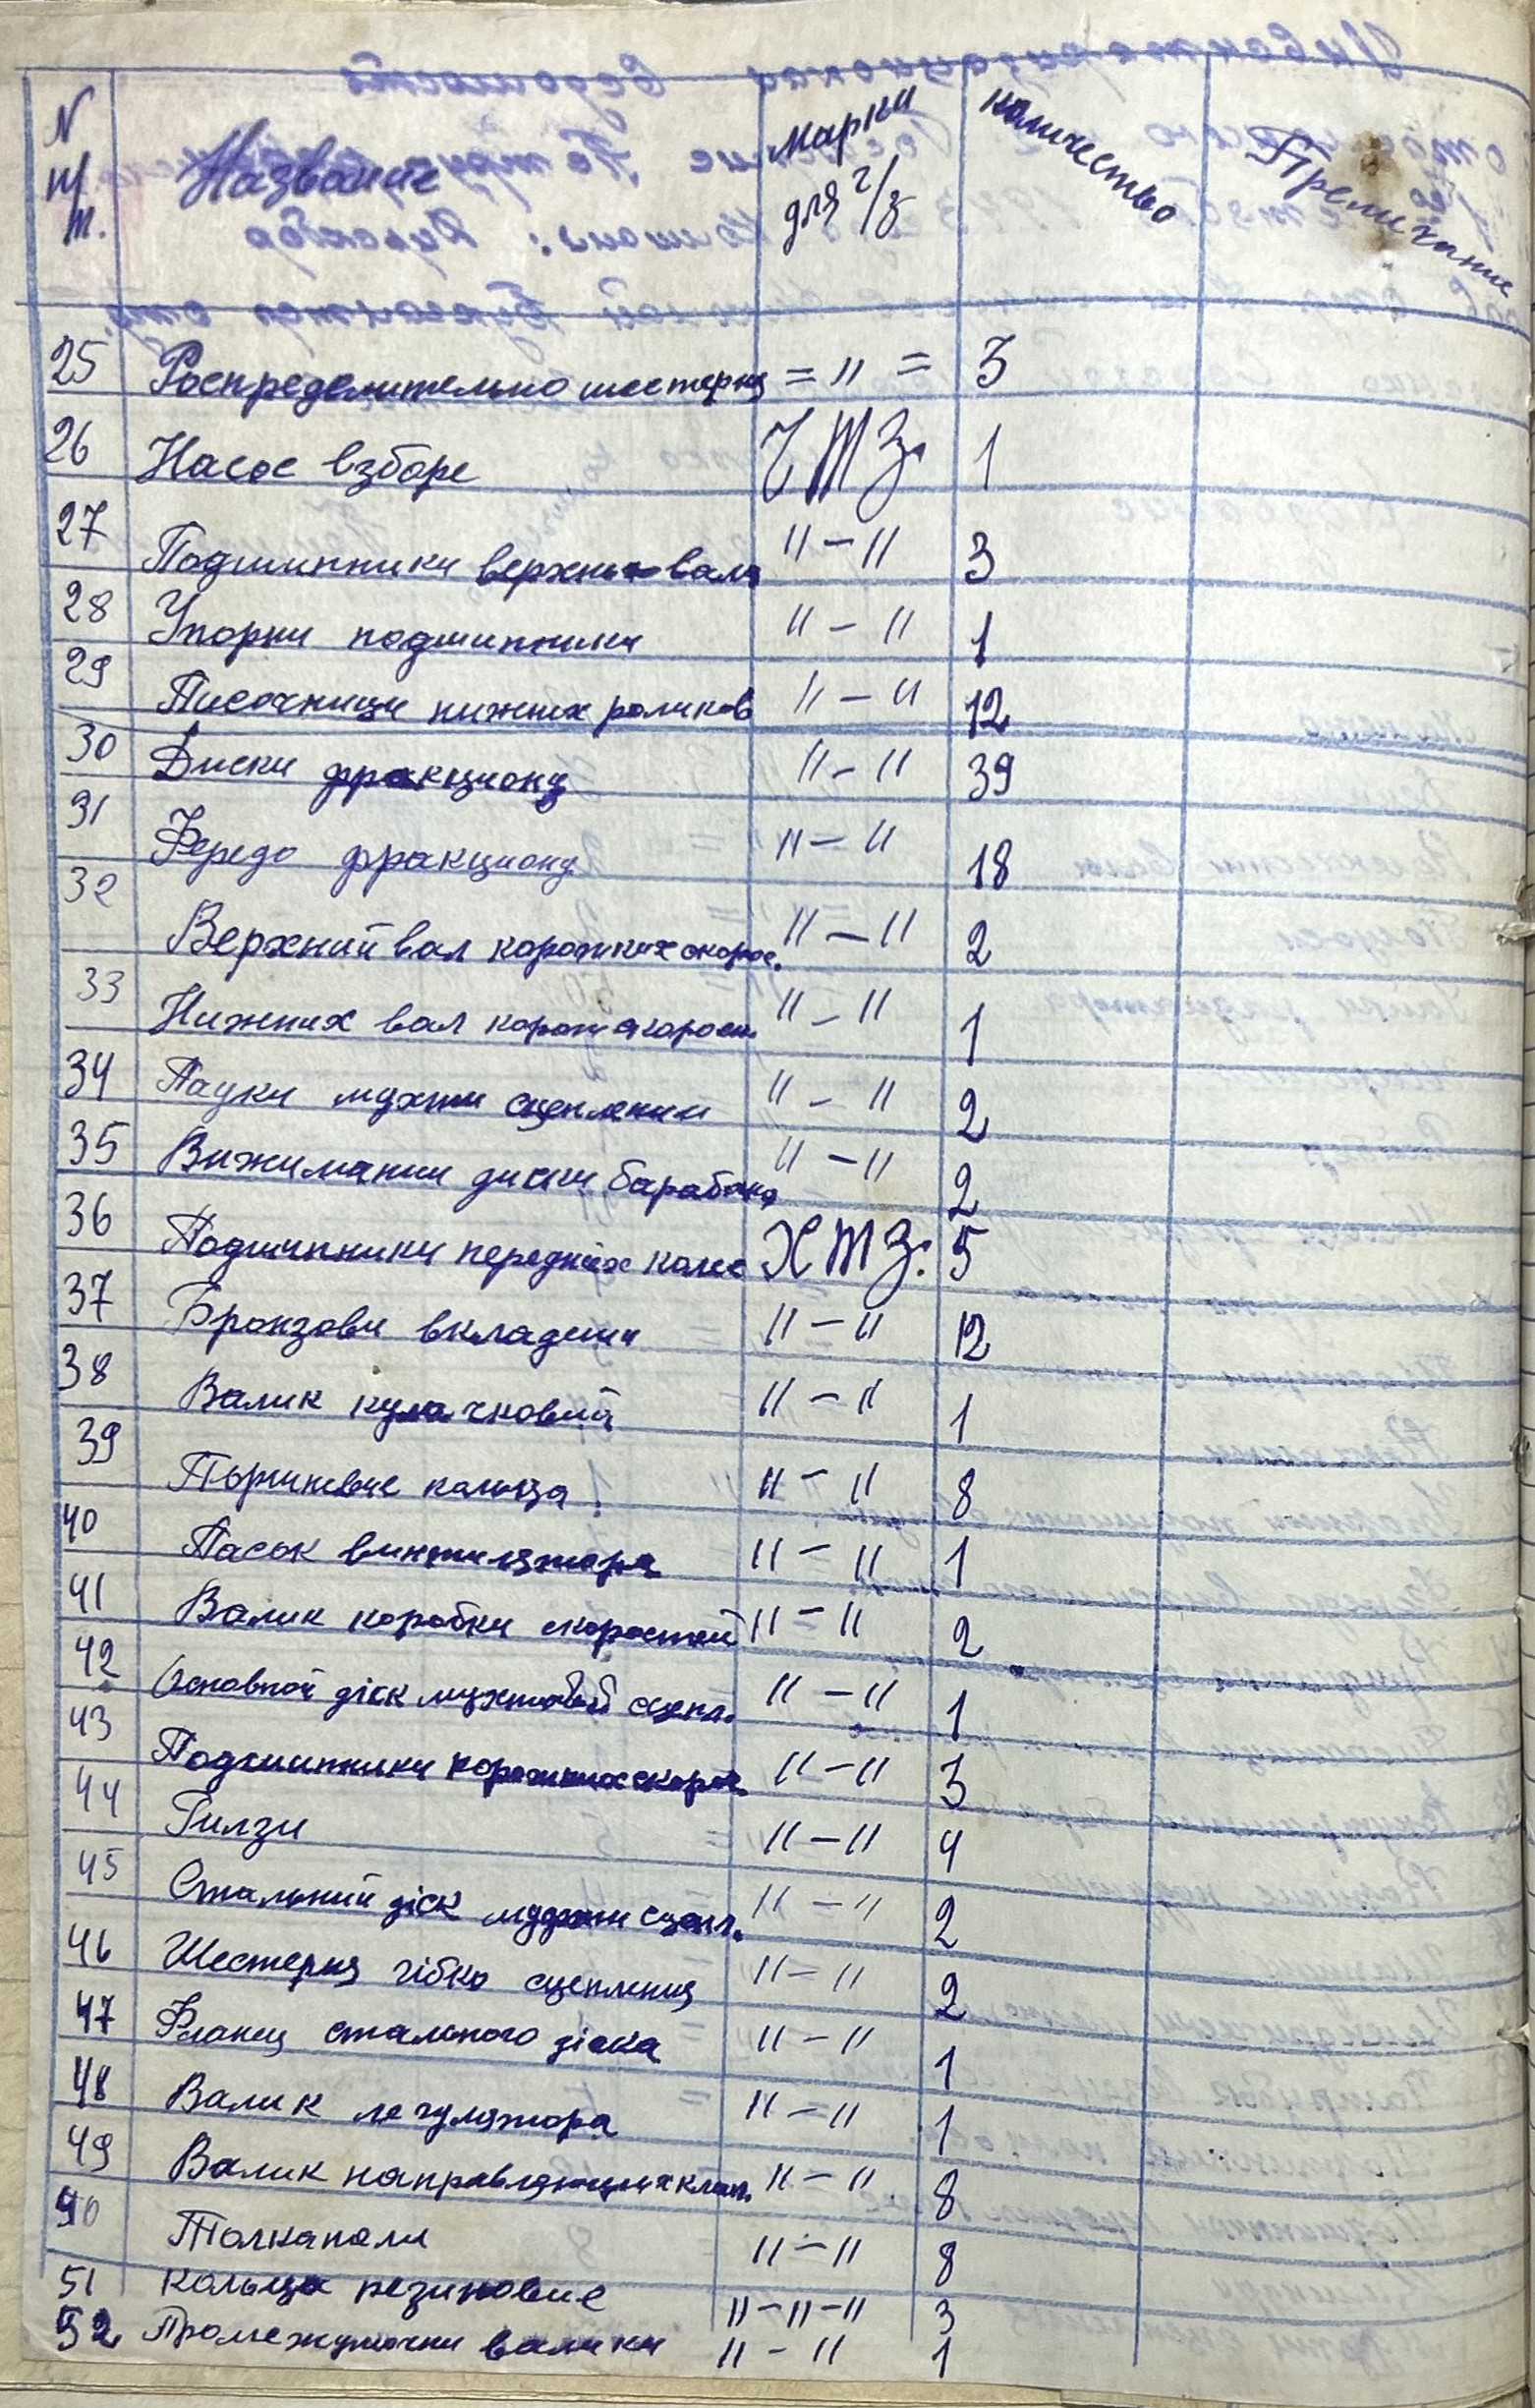 N п/п. Название марки для г/з количество Примичание
25 Роспределительно шестерня = " = 3
26 Насос взборе ЧТЗ. 1
27 Подшипники верхнього вала " - " 3
28 Упорни подшипники " - " 1
29 Писочници нижних роликов " - " 12
30 Диски фракциону " - " 39
31 Ферадо фракциону " - " 18
32 Верхний вал коротких скорос. " - " 2
33 Нижних вал корот скорости " - " 1
34 Пауки мухти сцеплении " - " 2
35 Вижимании диски барабана " - " 2
36 Подшипники передних колес ХТЗ. 5
37 Бронзови вкладиши " - " 12
38 Валик кулачковий " - " 1
39 Поршневие кольца " - " 8
40 Пасок винтилятора " - " 1
41 Валик коробки скоростей " - " 2
42 Основной діск мухтовый сцепл. " - " 1
43 Подшипники коротких скорос. " - " 3
44 Гилзи " - " 4
45 Стальний діск муфти сцепл. " - " 2
46 Шестерня гібко сцепления " - " 2
47 Фланец стального діска " - " 1
48 Валик легулятора " - " 1
49 Валик направляющих клап. " - " 8
50 Толкатели " - " 8
51 Кольца резиновие " - " - " 3
52 Промежуточни валики " - " 1